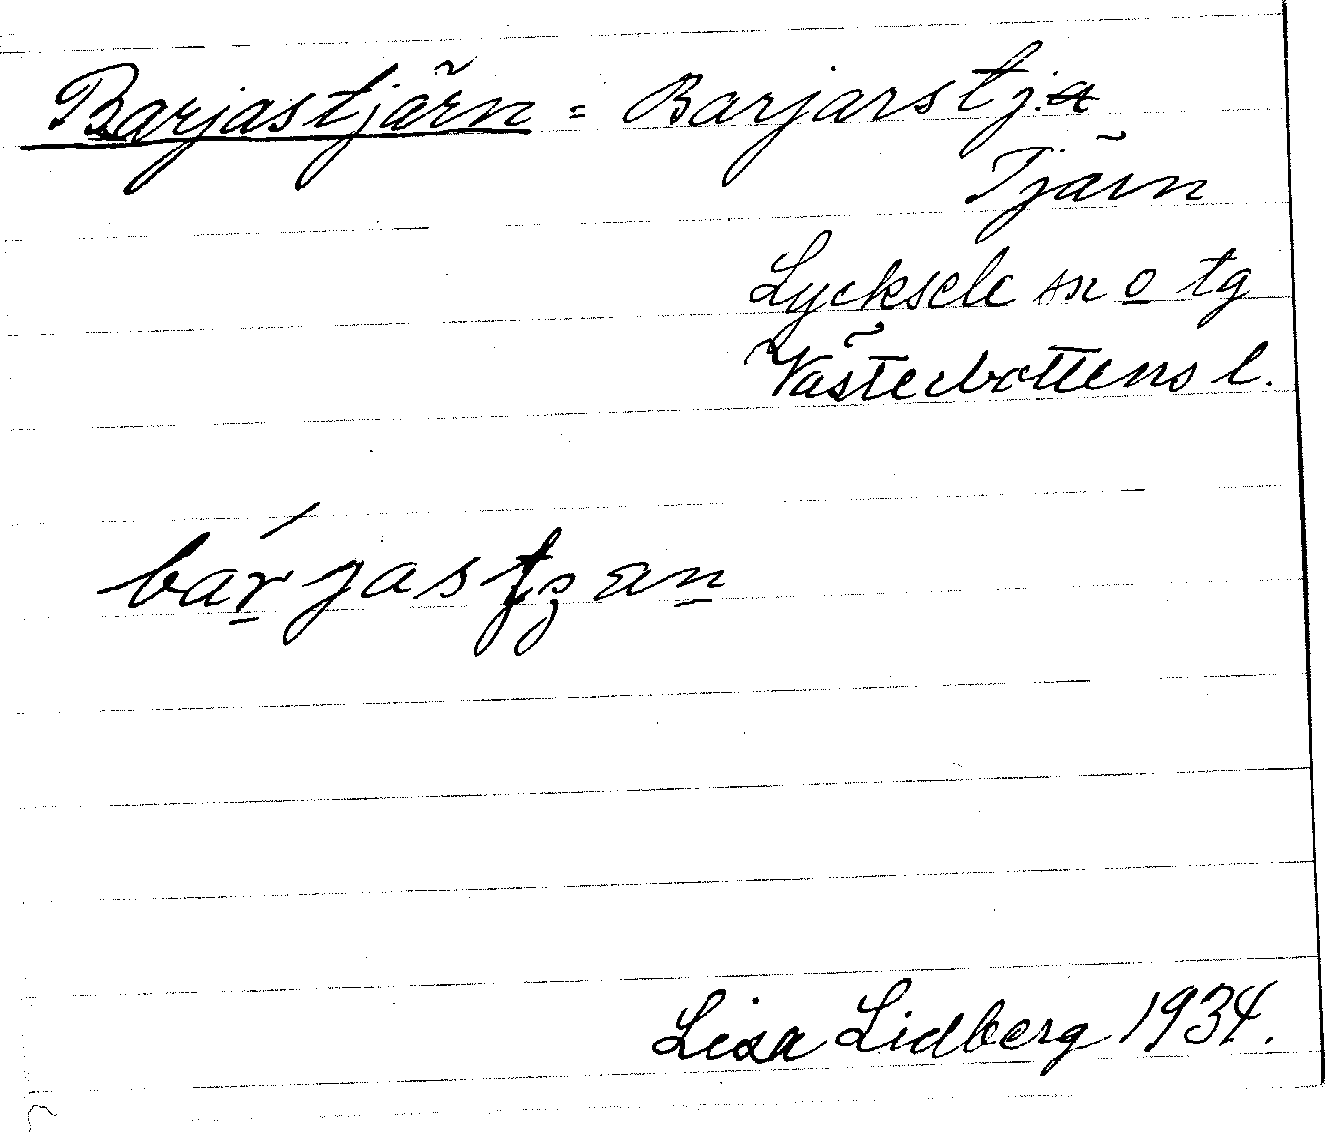 Barjastjärn = Barjarstj.a
Tjärn
Lycksele sn o tg
Västerbottens l.
Lisa Lidberg 1934.